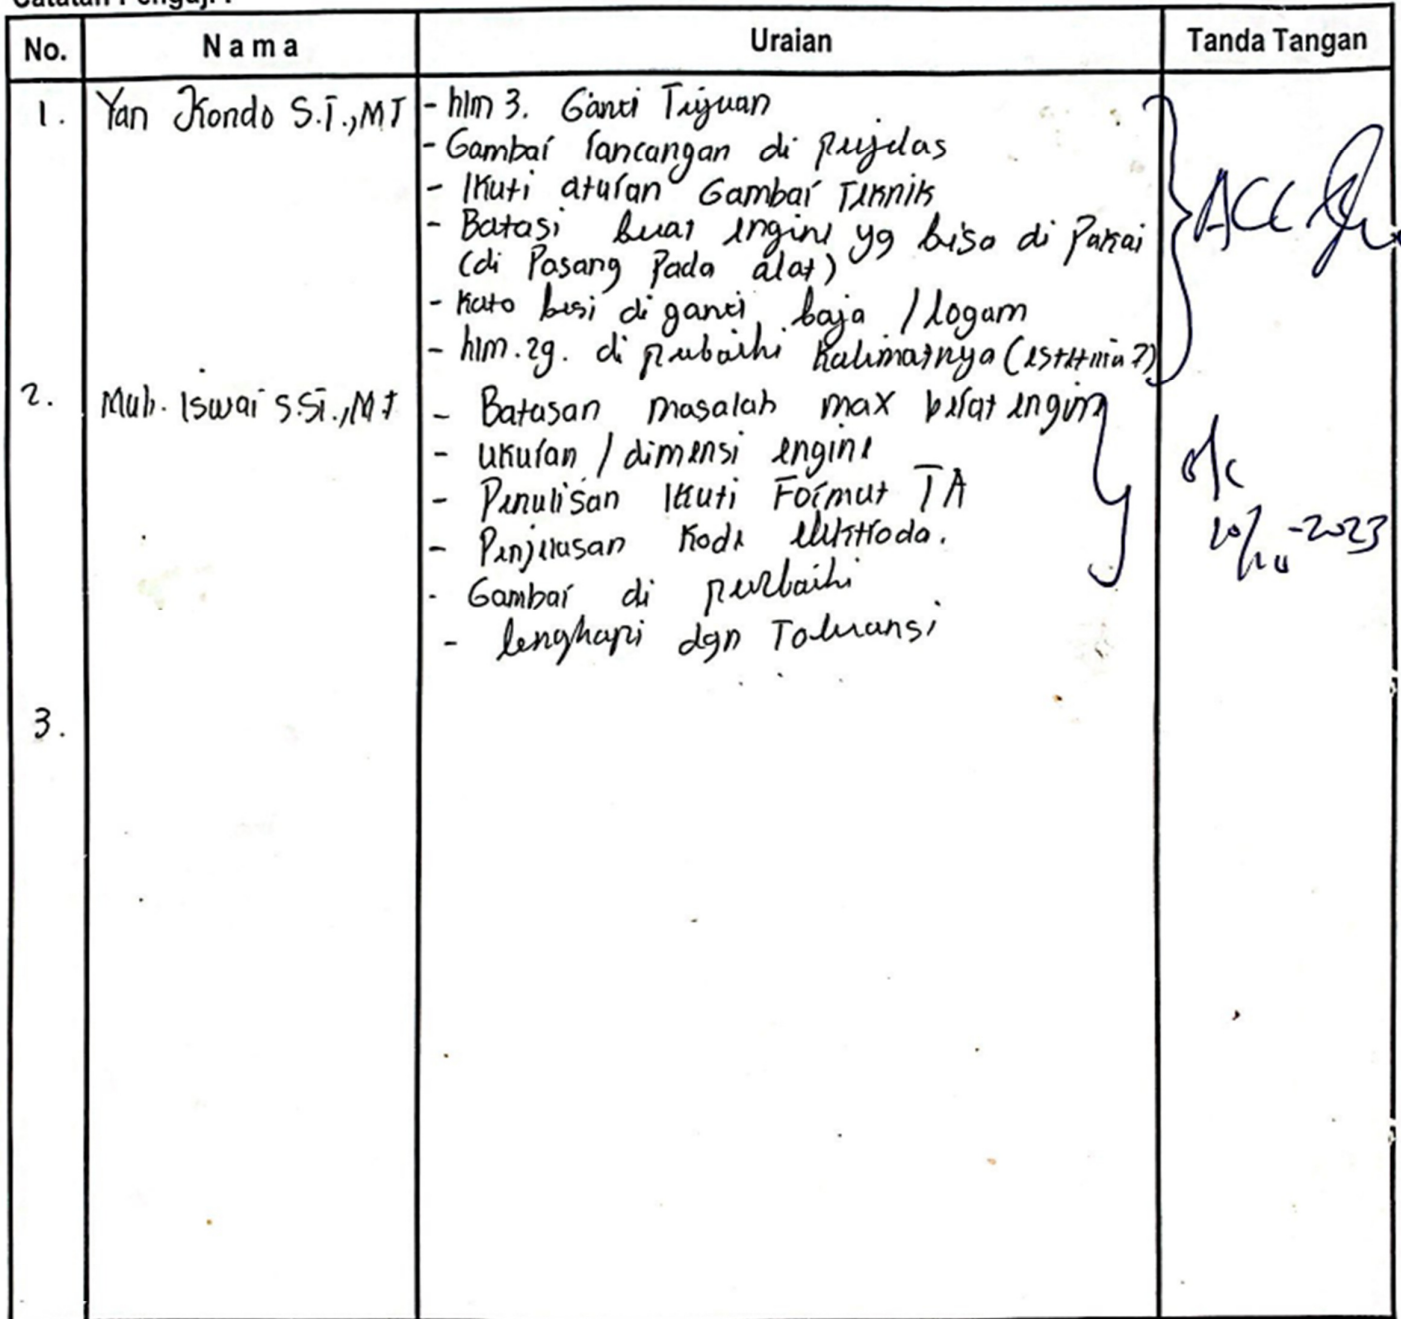 Catatan Penguji :
No. Nama Uraian Tanda Tangan
1. Yan Kondo S.T., MT - hlm 3. Ganti Tujuan
- Gambar rancangan di perjelas
- Ikuti aturan Gambar Teknik
- Batasi berat engine yg bisa di Pakai
(di Pasang Pada alat)
ACC
- Kata besi di ganti baja / logam
- hlm. 29. di perbaiki kalimatnya (estetika ?)
2. Muh. Iswar S.Si., MT - Batasan masalah max berat engine
- Ukuran / dimensi engine
- Penulisan Ikuti Format TA
- Penjelasan Kode elektroda.
-2023
- Gambar di perbaiki
- lengkapi dgn Toleransi
3.